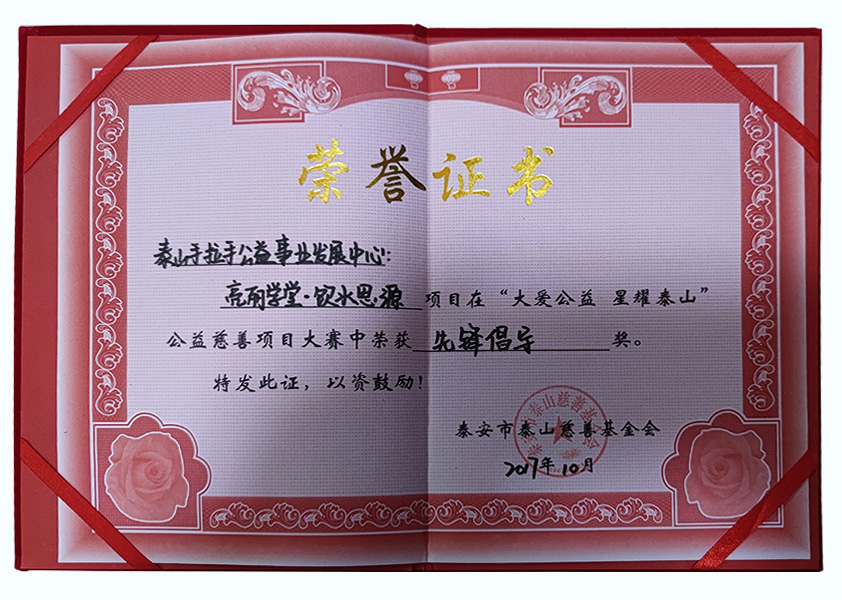 荣誉证书
泰山手拉手公益事业发展中心:
亮丽学堂·饮水思源 项目在“大爱公益 星耀泰山”
公益慈善项目大赛中荣获 先锋倡导 奖。
特发此证，以资鼓励!
泰安市泰山慈善基金会
2017年10月